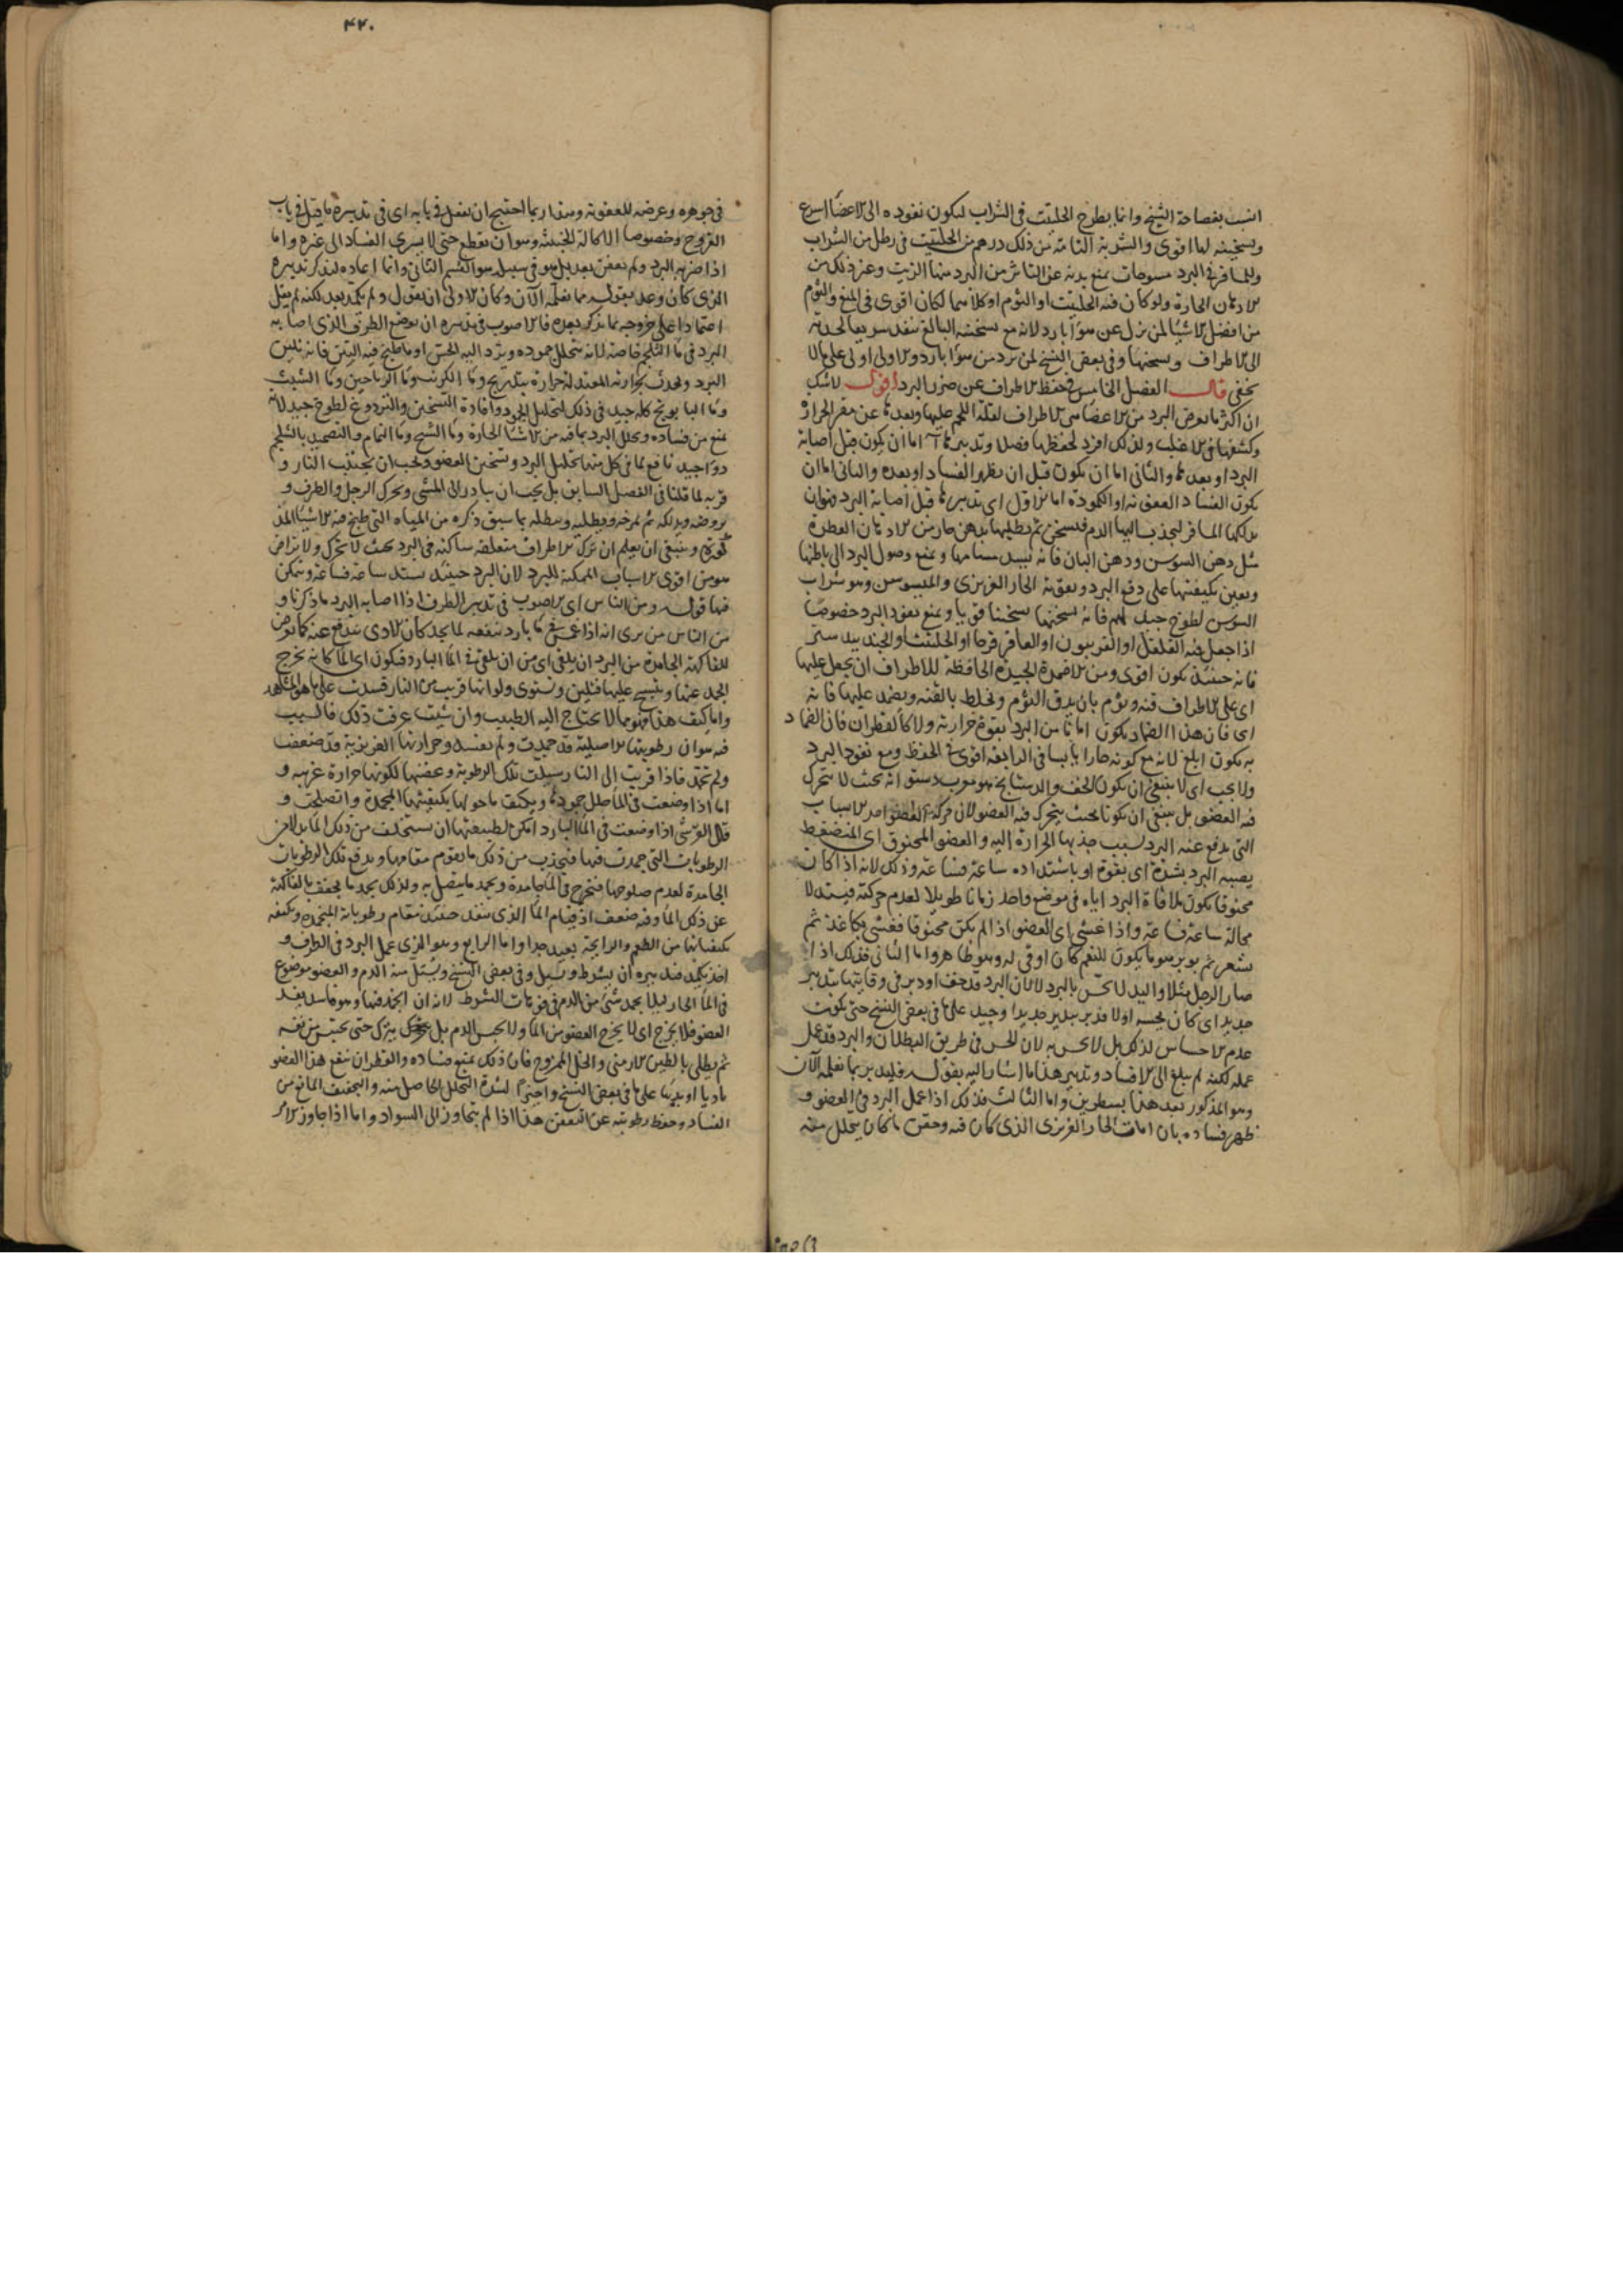 انسب بفصاحة الشيخ وانما يطرح الحلتيت فى الشراب ليكون نفوذه الى الاعضا اسرع
وتسخينه لها اقوى والشربة التامة من ذلك درهم من الحلتيت فى رطل من الشراب
وللمسافر فى البرد مسوحات تمنع بدنه عن التاثر من البرد منها الزيت وغير ذلك من
الادهان الحارة ولو كان فيه الحلتيت او الثوم او كلاهما لكان اقوى فى المنع والثوم
من افضل الاشيا لمن نزل عن هوا بارد لانه مع تسخينه البالغ ينفذ سريعا لحدته
الى الاطراف ويسخنها وفى بعض النسخ لمن برد من هوا بارد والاولى اولى على ما لا
يخفى قال الفصل الخامس فى حفظ الاطراف عن ضرر البرد اقول لا شك
ان اكثر ما يعرض البرد من الاعضا هى الاطراف لقلة اللحم عليها وبعدها عن مقر الحرارة
وكشفها فى الاغلب ولذلك افرد لحفظها فصلا وتدبيرها اما ان يكون قبل اصابة
البرد او بعدها والثانى اما ان يكون قبل ان يظهر الفساد او بعده والثانى اما ان
يكون الفساد العفونة او الكمودة اما الاول اى تدبيرها قبل اصابة البرد فهو ان
يدلكها المسافر ليجذب اليها الدم فيسخن ثم يطليها بدهن حار من الادهان العطرة
مثل دهن السوسن ودهن البان فانه يسد مسامها ويمنع وصول البرد الى باطنها
ويعين بكيفيتها على دفع البرد وبقوة الحار الغريزى والميسوسن وهو شراب
السوسن لطوخ جيد لهم فانه يسخنها تسخينا قويا ويمنع نفوذ البرد خصوصا
اذا جعل فيه الفلفل او الفربيون او العاقرقرحا او الحلتيت او الجندبيدستر
فانه حينئذ يكون اقوى ومن الاضمدة الجيدة الحافظة للاطراف ان يجعل عليها
اى على الاطراف قنه وثوم بان يدق الثوم ويخلط بالقنه ويضمد عليها فانه
اى فان هذا الضماد يكون امانا من البرد بقوة حرارته ولا كالقطران فان الضماد
به يكون ابلغ لانه مع كونه حارا يابسا فى الرابعة اقوى فى الحفظ ومنع نفوذ البرد
ولا يجب اى لا ينبغى ان يكون الخف والدستابخ بحيث لا يتحرك
فيه العضو بل ينبغى ان يكونا بحيث يتحرك فيه العضو لان حركة العضو احد الاسباب
التى يدفع عنه البرد بسبب جذبها الحرارة اليه والعضو المخنوق اى المنضغط
يصيبه البرد بشدة اى بقوة او باشتداده ساعة فساعة وذلك لانه اذا كان
مخنوقا يكون ملاقاة البرد اياه فى موضع واحد زمانا طويلا لعدم حركته فيشتد لا
محالة ساعة فساعة واذا غشى اى العضو اذا لم يكن مخنوقا فغشى بكاغذ ثم
شعر ثم بوبر كان اوقى له وهو ظاهر واما الثانى فذلك اذا
صار الرجل مثلا واليد لا تحس بالبرد لا لان البرد قد خف او دبر فى وقايتها بتدبير
جديد اى كان يحسه اولا
عدم الاحساس لذلك بل لا يحس به لان الحس فى طريق البطلان والبرد قد عمل
عمله لكنه لم يبلغ الى الافساد وتدبير هذا ما اشار اليه بقوله فليدبر بما نعلمه الآن
وهو المذكور بعد هذا بسطرين واما الثالث فذلك اذا عمل البرد فى العضو و
ظهر فساده بان امات الحار الغريزى الذى كان فيه وحقن ما كان يتحلل منه
۴۴۰
فى جوهره وعرضه للعفونة وهذا ربما احتيج ان يفعل فى بابه اى فى تدبيره ما قيل فى باب
القروح وخصوصا الاكالة الخبيثة وهو ان يقطع حتى لا يسرى الفساد الى غيره واما
اذا ضر به البرد ولم يعفن بعد بل هو فى سبيله هو القسم الثانى وانما اعاده ليذكر تدبيره
الذى كان وعد بقوله مما نعلمه الآن وكان الاولى ان يقول ولم يكمد بعد لكنه لم يقل
اعتمادا على خروجه بما يذكر بعده فالاصوب فى تدبيره ان يوضع الطرف الذى اصابه
البرد فى ما الثلج خاصة لانه يتحلل جموده ويرد اليه الحس او ما طبخ فيه التين فانه يلين
البرد ويحدث بحرارته المعتدلة حرارة بتدريج وما الكرنب وما الرياحين وما الشبث
وما البابونج كله جيد فى ذلك لتحليل الجمود وافادة التسخين والتردوغ لطوخ جيد لانه
يمنع من فساده ويحلل البرد بما فيه من الاشيا الحارة وما الشيح وما النمام والتضميد بالشلجم
دوا جيد نافع لما فى كل منها تحليل البرد وتسخين العضو ويجب ان يجتنب النار و
قربه لما قلنا فى الفصل السابق بل يجب ان يبادر الى المشى ويحرك الرجل والطرف و
يروضه ويدلكه ثم يمرخه ويطليه وينطله بما سبق ذكره من المياه التى طبخ فيه الاشيا المذ
كورة وينبغى ان يعلم ان ترك الاطراف متعلقة ساكنة فى البرد بحيث لا تتحرك ولا تراض
هو من اقوى الاسباب الممكنة للبرد لان البرد حينئذ يستد ساعة فساعة ويتمكن
فيها قوله ومن الناس اى الاصوب فى تدبير الطرف اذا اصابه البرد ما ذكرنا و
من الناس من يرى انه اذا غمس فى ما بارد ينفعه لما يجد كان الاذى يندفع عنه كما يعرض
للفاكهة الجامدة من البرد ان يلقى اى من ان يلقى فى الما البارد فيكون اى الما كانه يخرج
الجمد عنها وينسج عليها فتلين وتستوى ولو انها قربت من النار فسدت على ما هو المشاهد
واما كيف هذا فهو مما لا يحتاج اليه الطبيب وان شئت عرفت ذلك فالسبب
فيه هو ان رطوبتها الاصلية قد جمدت ولم تفسد وحرارتها الغريزية قد ضعفت
ولم تخمد فاذا قربت الى النار سيلت تلك الرطوبة وعفنتها لكونها حرارة غريبة و
اما اذا وضعت فى الما جمودها ويكيف ما حولها بكيفيتها المجمدة وانصلحت و
قال القرشى اذا وضعت فى الما البارد امكن لطبيعتها ان تستخلف من ذلك الما بدلا من
الرطوبات التى جمدت فيها فتجذب من ذلك ما يقوم مقامها ويدفع تلك الرطوبات
الجامدة لعدم صلوحها فتخرج فى الما جامدة ويجمد ما يتصل به ولذلك يجمد ما يحتف بالفاكهة
عن ذلك الما وفيه ضعف اذ قيام الما الذى ينفذ حينئذ مقام رطوباته المنجمدة وتكيفه
بكيفياتها من الطعم والرايحة بعيد جدا واما الرابع وهو الذى عمل البرد فى الطرف و
اخذ يكمد فتدبيره ان يشرط ويسيل وفى بعض النسخ ويستل منه الدم والعضو موضوع
فى الما الحار ليلا يجمد شئ من الدم فى فوهات الشرط لانه ان انجمد فيها وهو فاسد يفسد
العضو فلا يخرج اى لا يخرج العضو من الما ولا يحبس الدم بل يترك حتى يحتبس من نفسه
ثم يطلى بالطين الارمنى والخل الممزوج فان ذلك يمنع فساده والقطران ينفع هذا العضو
باديا او على ما فى بعض النسخ واخيرا لشدة التحلل الحاصل منه والتجفيف المانع من
الفساد وحفظ رطوبته عن التعفن هذا اذا لم يتجاوز الى السواد واما اذا جاوز الامر